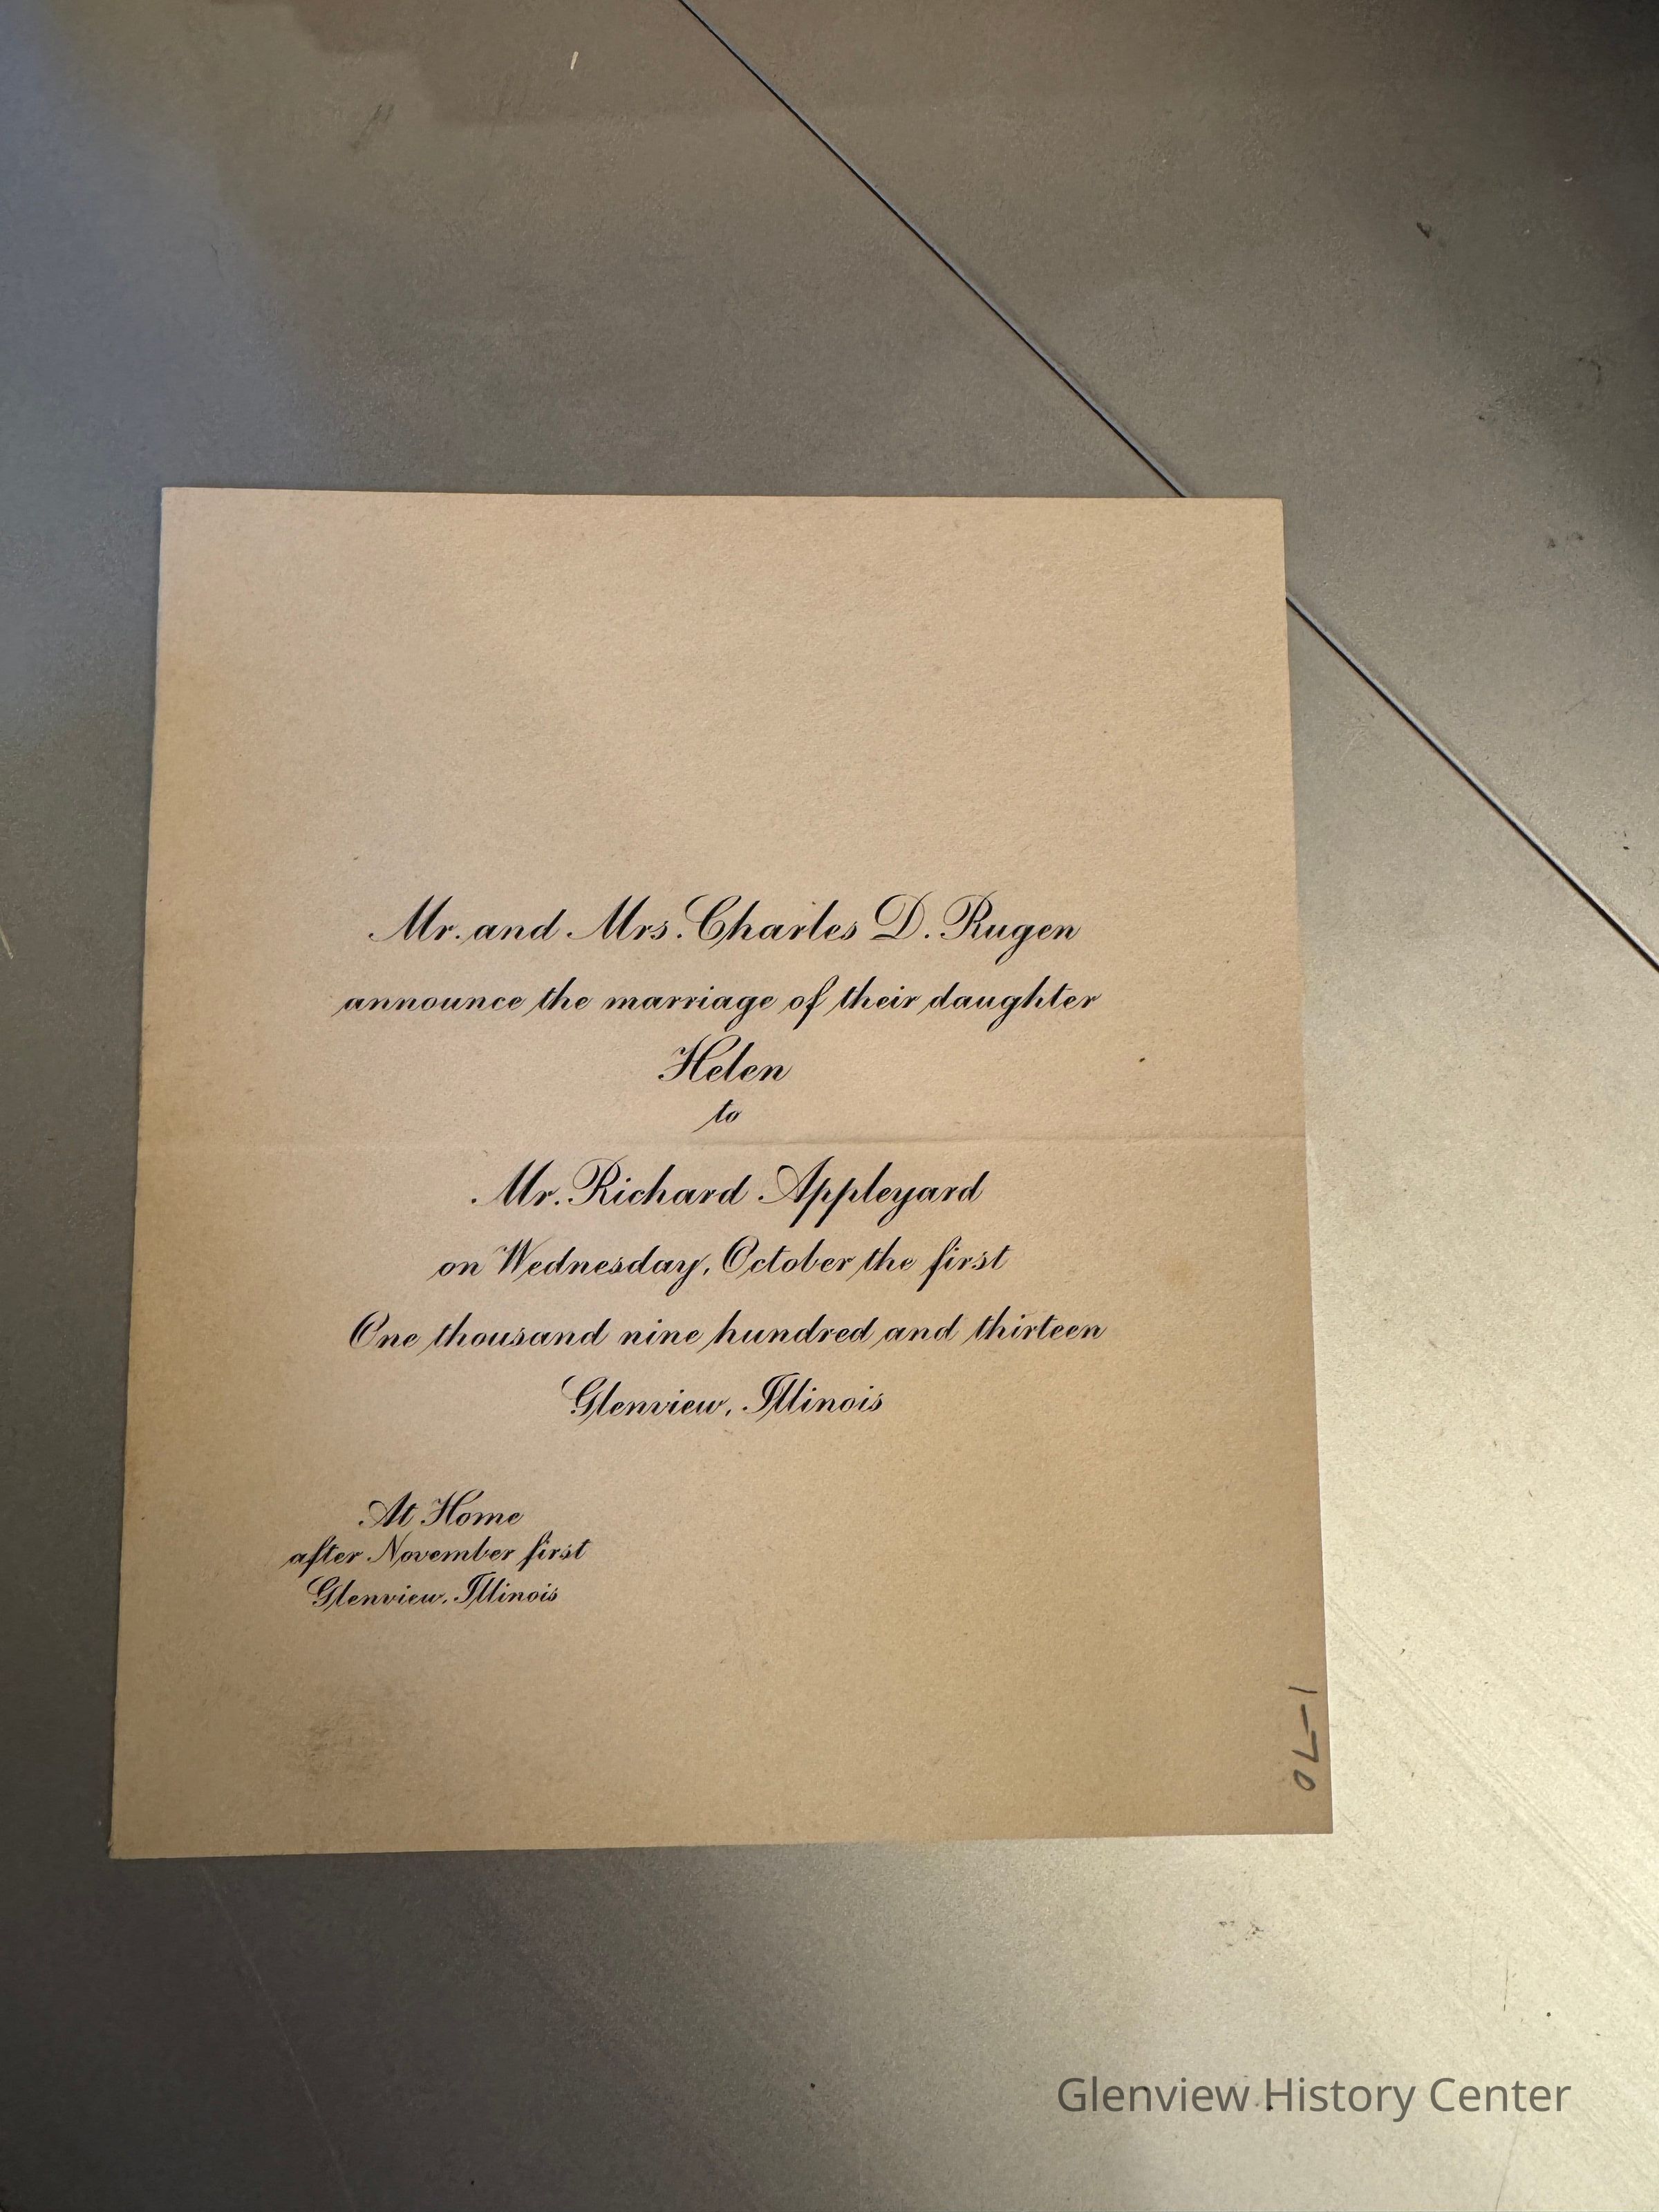 Mr. and Mrs. Charles D. Rugen
announce the marriage of their daughter
Helen
to
Mr. Richard Appleyard
on Wednesday, October the first
One thousand nine hundred and thirteen
Glenview, Illinois
At Home
after November first
Glenview, Illinois
Glenview History Center